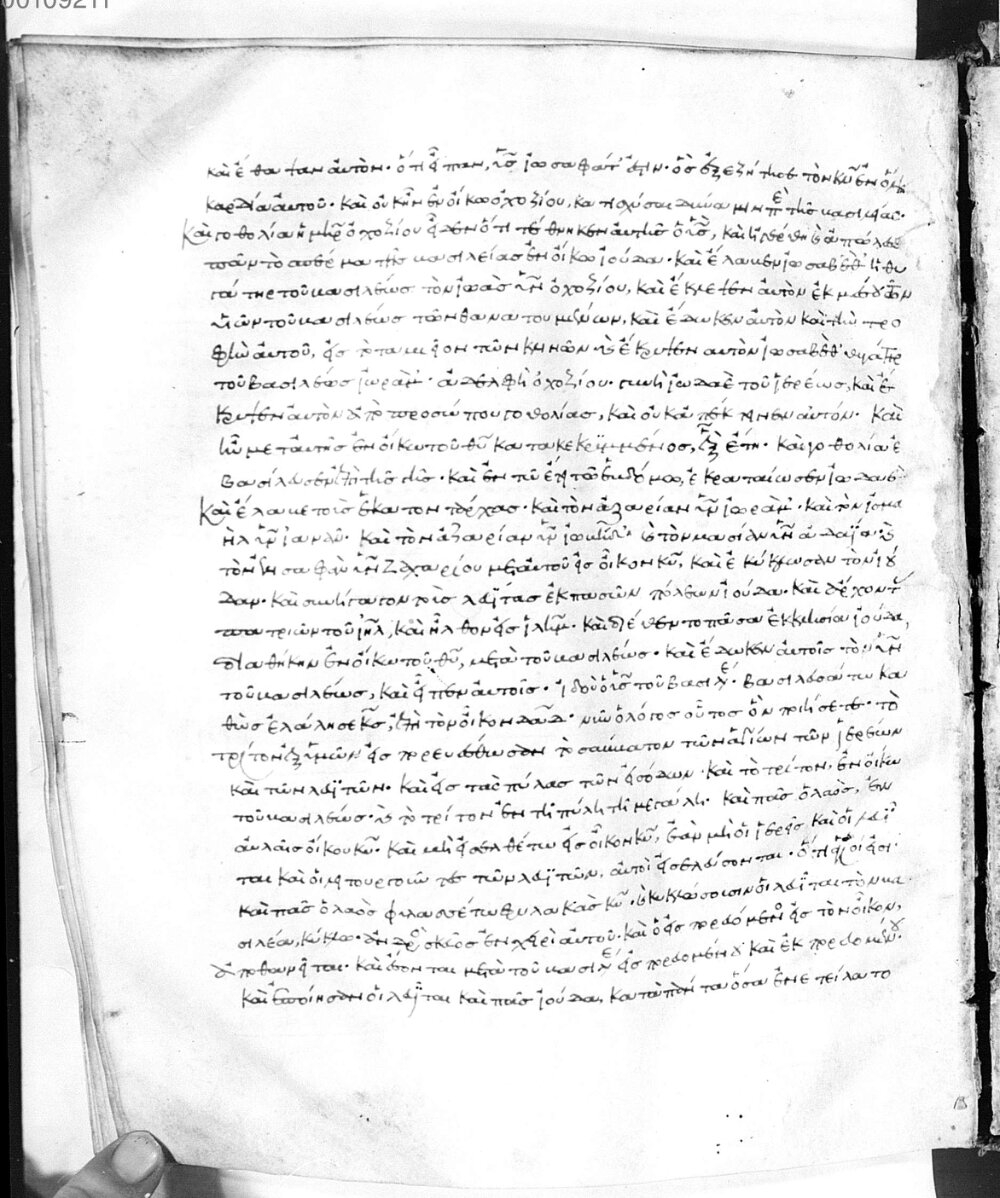 00109211
καὶ ἔθαψαν αὐτὸν· ὅτι εἶπαν, υἱὸς ἰωσαφάτ ἐστιν· ὃς ἐξεζήτησε τὸν κν ἐν ὅλῃ
καρδίᾳ αὐτοῦ· καὶ οὐκ ἦν ἐν οἴκῳ ὀχοζίου, κατισχύσαι δύναμιν ἐπὶ τῆς βασιλείας·
Καὶ γοθολία ἡ μηρ ὀχοζίου εἶδεν ὅτι τέθνηκεν αὐτῆς ὁ υἱὸς, καὶ ἠγέρθη καὶ ἀπώλεσε
πᾶν τὸ σπέρμα τῆς βασιλείας ἐν οἴκῳ ἰούδα· καὶ ἔλαβεν ἰωσαβὲθ ἡ θυ
γάτηρ τοῦ βασιλέως τὸν ἰωὰς υἱὸν ὀχοζίου, καὶ ἔκλεψεν αὐτὸν ἐκ μέσου τῶν
υἱῶν τοῦ βασιλέως τῶν θανατουμένων, καὶ ἔδωκεν αὐτὸν καὶ τὴν τρο
φὸν αὐτοῦ, εἰς τὸ ταμιεῖον τῶν κλινῶν· καὶ ἔκρυψεν αὐτὸν ἰωσαβὲθ θυγάτηρ
τοῦ βασιλέως ἰωρὰμ· ἀδελφὴ ὀχοζίου· γυνὴ ἰωδαὲ τοῦ ἱερέως, καὶ ἔ
κρυψεν αὐτὸν ἀπὸ προσώπου γοθολίας, καὶ οὐκ ἀπέκτεινεν αὐτόν· καὶ
ἦν μετ' αὐτῆς ἐν οἴκῳ τοῦ θυ κατακεκρυμμένος, ἓξ ἔτη· καὶ γοθολία ἐ
βασίλευσεν ἐπὶ τῆς γῆς· καὶ ἐν τῷ ἔτει τῷ ἑβδόμῳ, ἐκραταίωσεν ἰωδαὲ·
Καὶ ἔλαβε τοὺς ἑκατοντάρχας· καὶ τὸν ἀζαρίαν υἱὸν ἰωρὰμ· καὶ τὸν ἰσμα
ὴλ υἱὸν ἰωανὰν· καὶ τὸν ἀζαρίαν υἱὸν ἰωβὴδ· καὶ τὸν μασίαν υἱὸν ἀδαΐα· καὶ
τὸν ἐλισαφὰν υἱὸν ζαχαρίου μετ' αὐτοῦ εἰς οἶκον κυ, καὶ ἐκύκλωσαν τὸν ἰού
δαν· καὶ συνήγαγον τοὺς λευίτας ἐκ πασῶν πόλεων ἰούδα· καὶ ἄρχοντας
πατριῶν τοῦ ιηλ, καὶ ἦλθον εἰς ιλημ· καὶ διέθεντο πᾶσα ἐκκλησία ἰούδα,
διαθήκην ἐν οἴκῳ τοῦ θυ, μετὰ τοῦ βασιλέως· καὶ ἔδωκεν αὐτοῖς τὸν υἱὸν
τοῦ βασιλέως, καὶ εἶπεν αὐτοῖς· ἰδοὺ ὁ υἱὸς τοῦ βασιλέως· βασιλευσάτω κα
θὼς ἐλάλησε κς, ἐπὶ τὸν οἶκον δαδ· νῦν ὁ λόγος οὗτος ὃν ποιήσετε· τὸ
τρίτον ἐξ ὑμῶν εἰσπορευέσθωσαν τὸ σάββατον τῶν ἁγίων τῶν ἱερέων
καὶ τῶν λευϊτῶν· καὶ εἰς τὰς πύλας τῶν εἰσόδων· καὶ τὸ τρίτον, ἐν οἴκῳ
τοῦ βασιλέως· καὶ τὸ τρίτον ἐν τῇ πύλῃ τῇ μεγάλῃ· καὶ πᾶς ὁ λαὸς, ἐν
αὐλαῖς οἴκου κυ· καὶ μὴ εἰσελθέτω εἰς οἶκον κυ, ἐὰν μὴ οἱ ἱερεῖς καὶ οἱ λευῖ
ται καὶ οἱ λειτουργοῦντες τῶν λευϊτῶν, αὐτοὶ εἰσελεύσονται· ὅτι ἅγιοί εἰσι·
καὶ πᾶς ὁ λαὸς φυλασσέτω φυλακὰς κυ· καὶ κυκλώσουσιν οἱ λευῖται τὸν βα
σιλέα, κύκλῳ· ἀνδρὸς σκεῦος ἐν χειρὶ αὐτοῦ· καὶ ὁ εἰσπορευόμενος εἰς τὸν οἶκον,
ἀποθανεῖται· καὶ ἔσονται μετὰ τοῦ βασιλέως εἰσπορευομένου καὶ ἐκπορευομένου·
καὶ ἐποίησαν οἱ λευῖται καὶ πᾶς ἰούδα, κατὰ πάντα ὅσα ἐνετείλατο